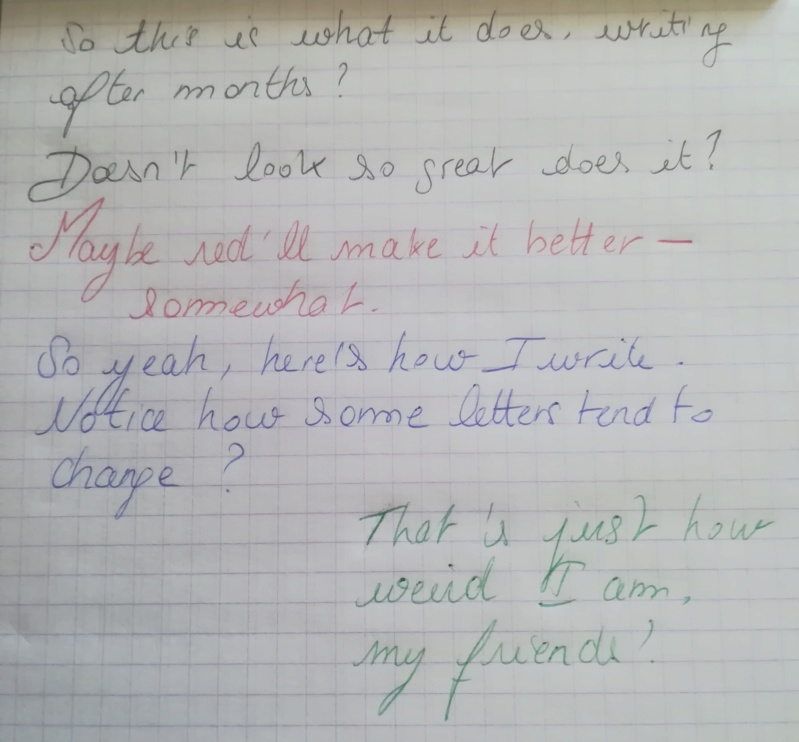 So this is what it does, writing
after months?
Doesn't look so great does it?
Maybe red'll make it better –
somewhat.
So yeah, here's how I write.
Notice how some letters tend to
change?
That's just how
weird I am,
my friends!